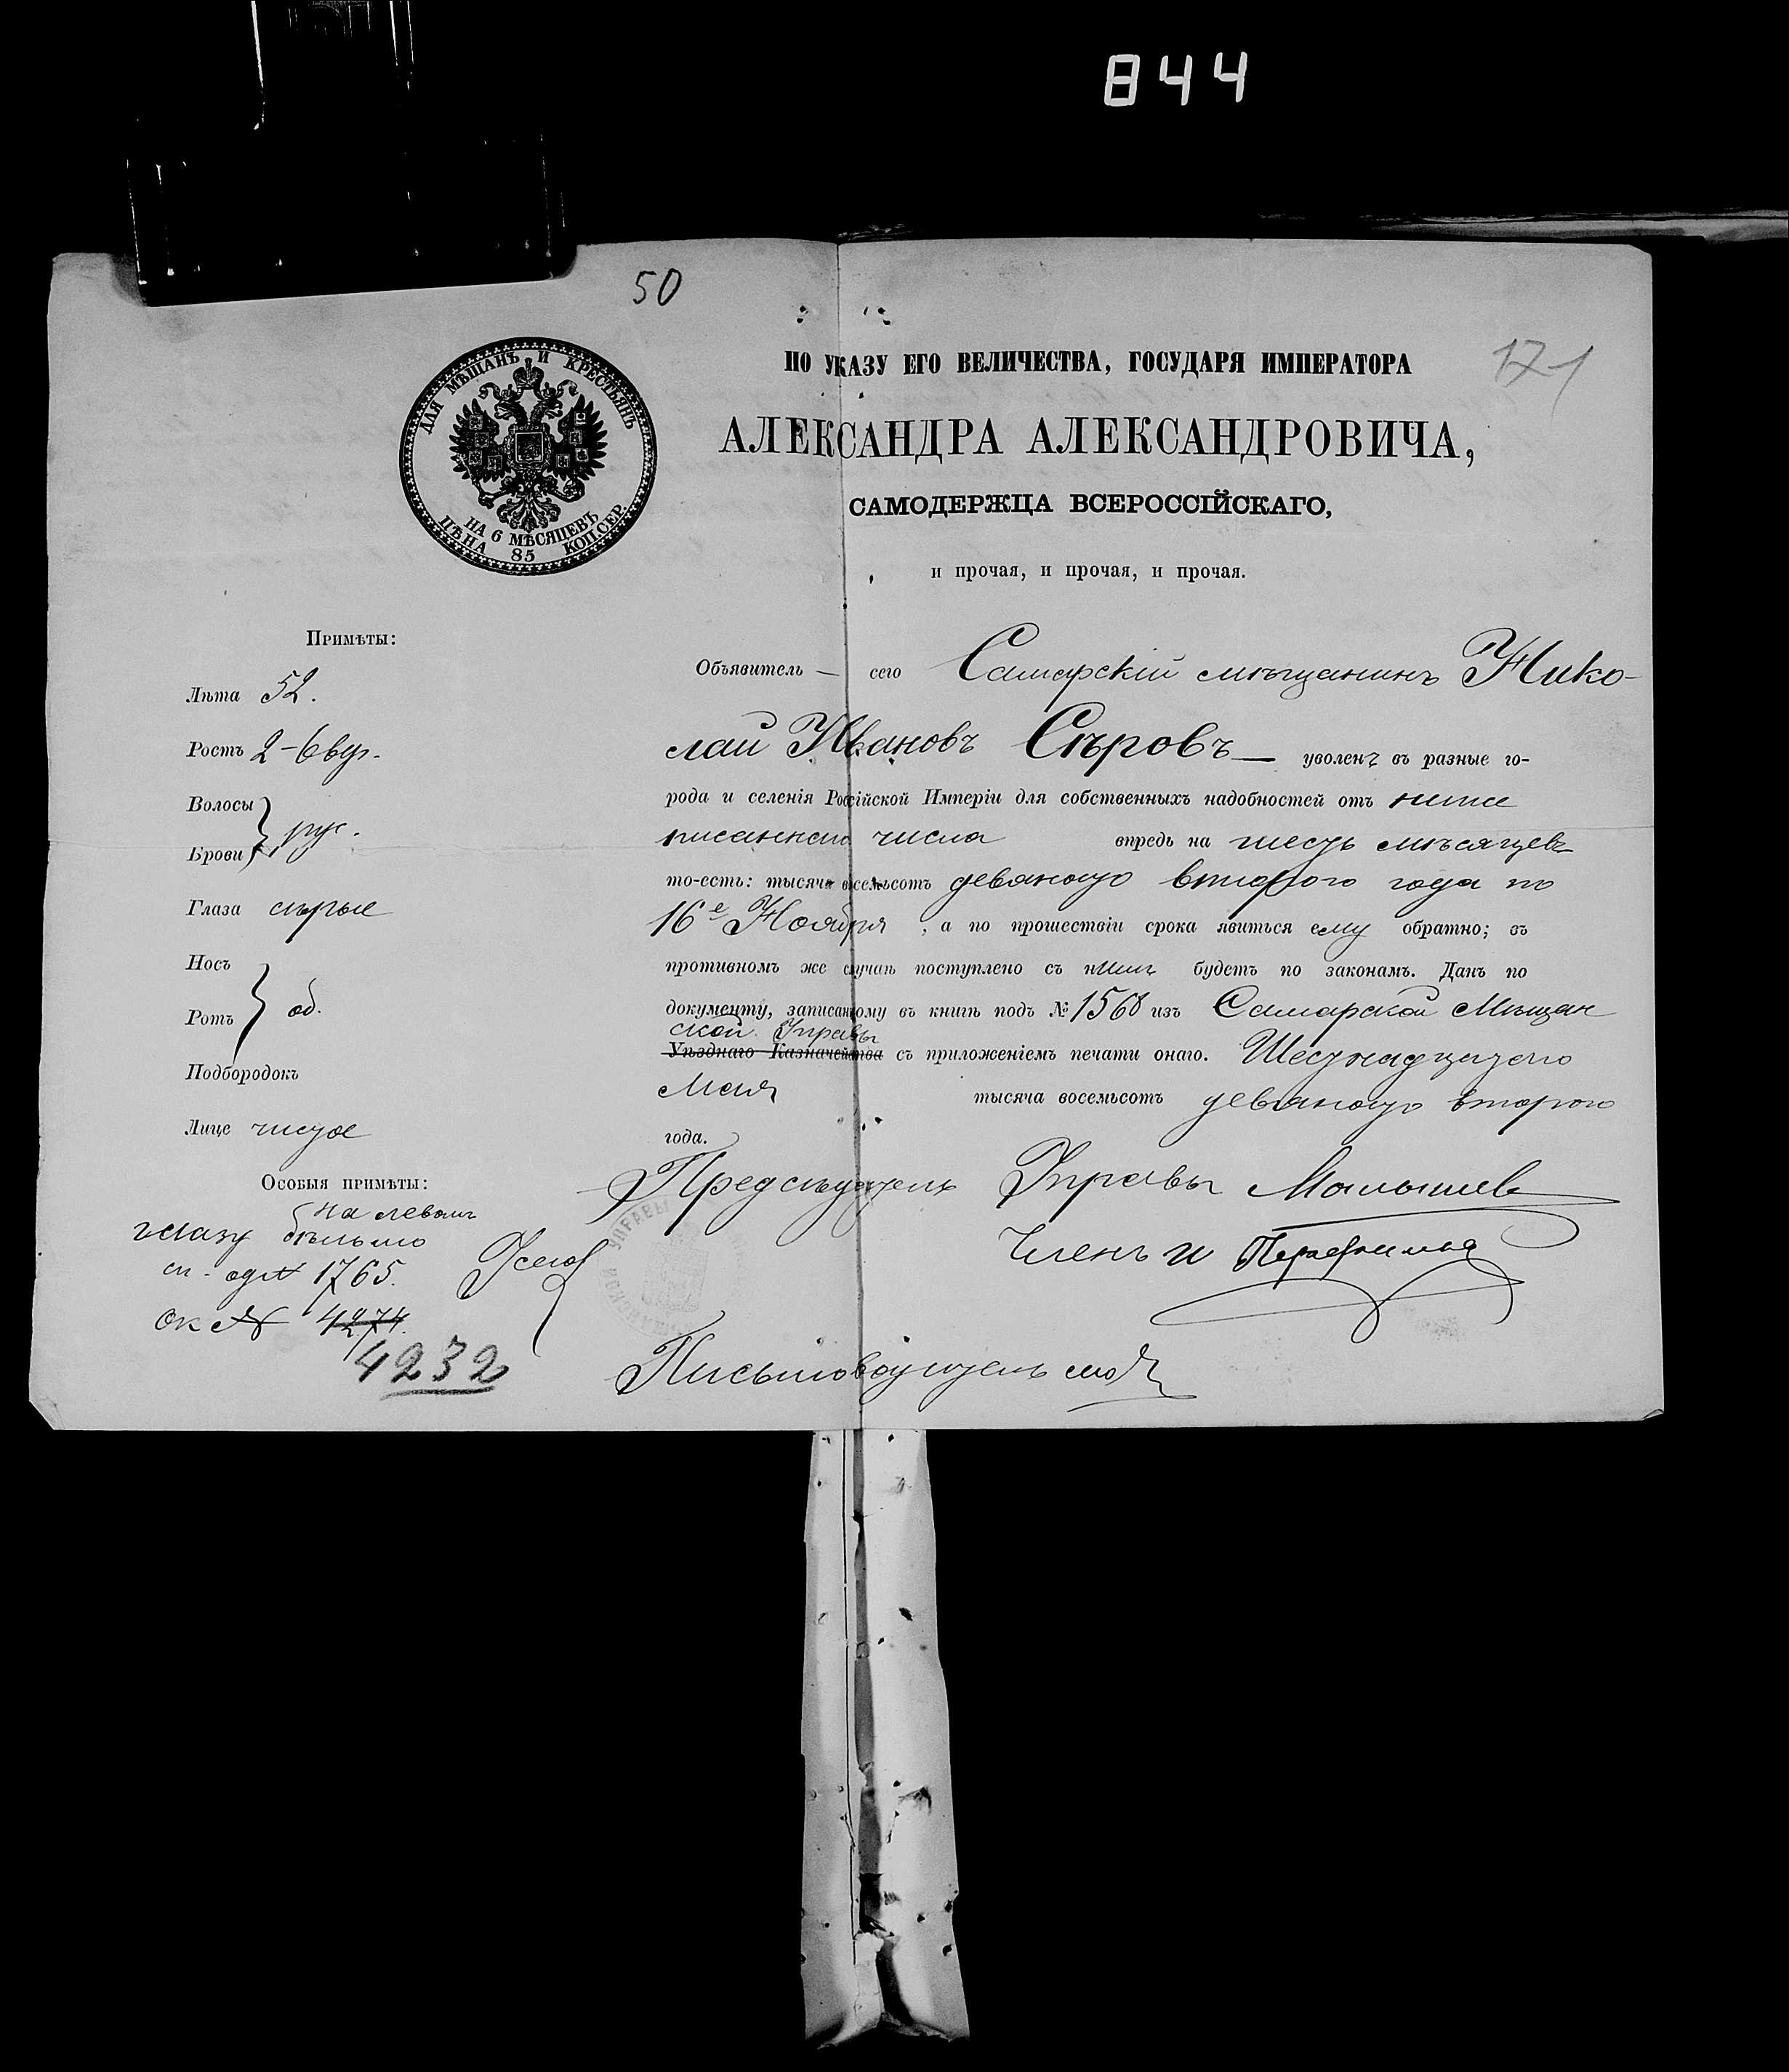 844
50
171
ДЛЯ МѢЩАНЪ И КРЕСТЬЯНЪ
НА 6 МѢСЯЦЕВЪ
ЦѢНА 85 КОП.СЕР.
ПО УКАЗУ ЕГО ВЕЛИЧЕСТВА, ГОСУДАРЯ ИМПЕРАТОРА
АЛЕКСАНДРА АЛЕКСАНДРОВИЧА,
САМОДЕРЖЦА ВСЕРОССІЙСКАГО,
и прочая, и прочая, и прочая.
Примѣты:
Лѣта 52.
Ростъ 2–6 вер.
Волосы
Брови } рус.
Глаза сѣрые
Носъ
Ротъ } об.
Подбородокъ
Лице чистое
Особыя примѣты:
на левомъ
глазу бѣльмо
1765.
ок № 4274.
4232
Объявитель — сего Самарскій мѣщанинъ Нико-
лай Ивановъ Сѣровъ — уволенъ въ разные го-
рода и селенія Россійской Имперіи для собственныхъ надобностей отъ ниже
писаннаго числа впредь на шесть мѣсяцевъ
то-есть: тысяча восемьсотъ девяносто второго года по
16е Ноября, а по прошествіи срока явиться ему обратно; въ
противномъ же случаѣ поступлено съ нимъ будетъ по законамъ. Данъ по
документу, записанному въ книгѣ подъ № 1568 изъ Самарской Мѣщан
ской Управы
Уѣзднаго Казначейства съ приложеніемъ печати онаго. Шестнадцатаго
Мая тысяча восемьсотъ девяносто второго
года.
Предсѣдатель Управы Малышев
Членъ и
УПРАВЫ
Письмоводитель